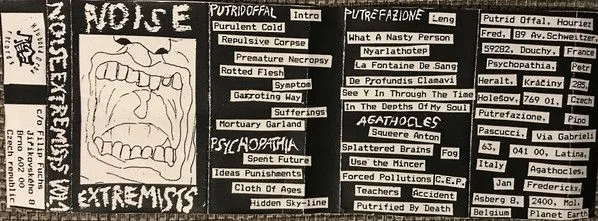 NOISE EXTREMISTS VOL.1
c/o Filip Fuchs
8
Brno 602 00
Czech republic
NOISE
EXTREMISTS
PUTRIDOFFAL Intro
Purulent Cold
Repulsive Corpse
Premature Necropsy
Rotted Flesh
Symptom
Garroting Way
Sufferings
Mortuary Garland
PSYCHOPATHIA
Spent Future
Ideas Punishments
Cloth Of Ages
Hidden Sky-line
PUTREFAZIONE Leng
What A Nasty Person
Nyarlathotep
La Fontaine De Sang
De Profundis Clamavi
See Y In Through The Time
In The Depths Of My Soul
AGATHOCLES
Squeere Anton
Splattered Brains Fog
Use the Mincer
Forced Pollutions C.E.P.
Teachers Accident
Putrified By Death
Putrid Offal, Houriez
Fred. 89 Av.Schweitzer.
59282. Douchy. France
Psychopathia. Petr
Heralt. Kráčiny 285.
Holešov. 769 01. Czech
Putrefazione. Pino
Pascucci. Via Gabrieli
63. 041 00. Latina.
Italy Agathocles.
Jan Fredericks.
Asberg 8. 2400. Mol.
Belgium Planet Earth